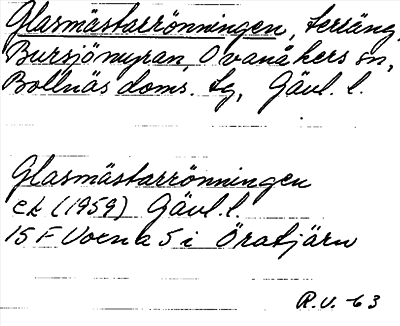 Glasmästarrönningen, terräng,
Bursjönyran, Ovanåkers sn,
Bollnäs doms. tg, Gävl. l.
Glasmästarrönningen
ek (1959) Gävl. l.
15 F Voxna 5 i Öratjärn
R.U. -63